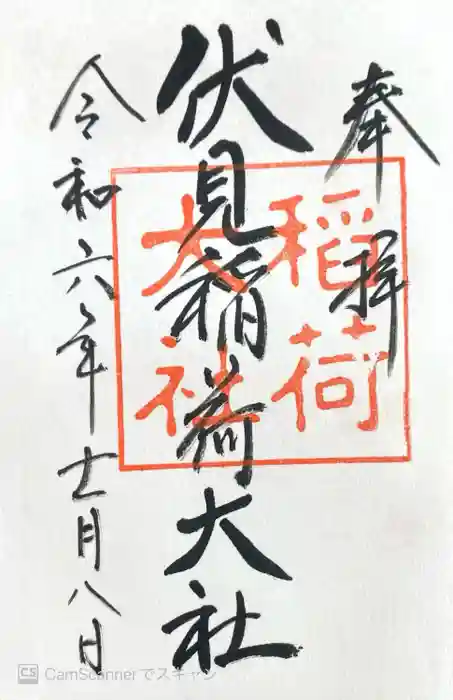 奉拝
伏見稲荷大社
稲荷
大社
令和六年十一月八日
CS CamScannerでスキャン